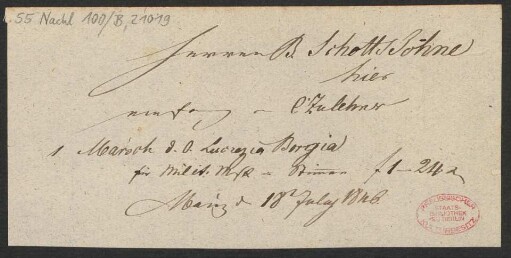 55 Nachl 100/B, 21019
Herren B. Schott's Söhne
hier
C Zulehner
1 Marsch d. O. Lucrezia Borgia
für Milit. f 1–24 x
Mainz d 18t July 1846
STAATS-
BIBLIOTHEK